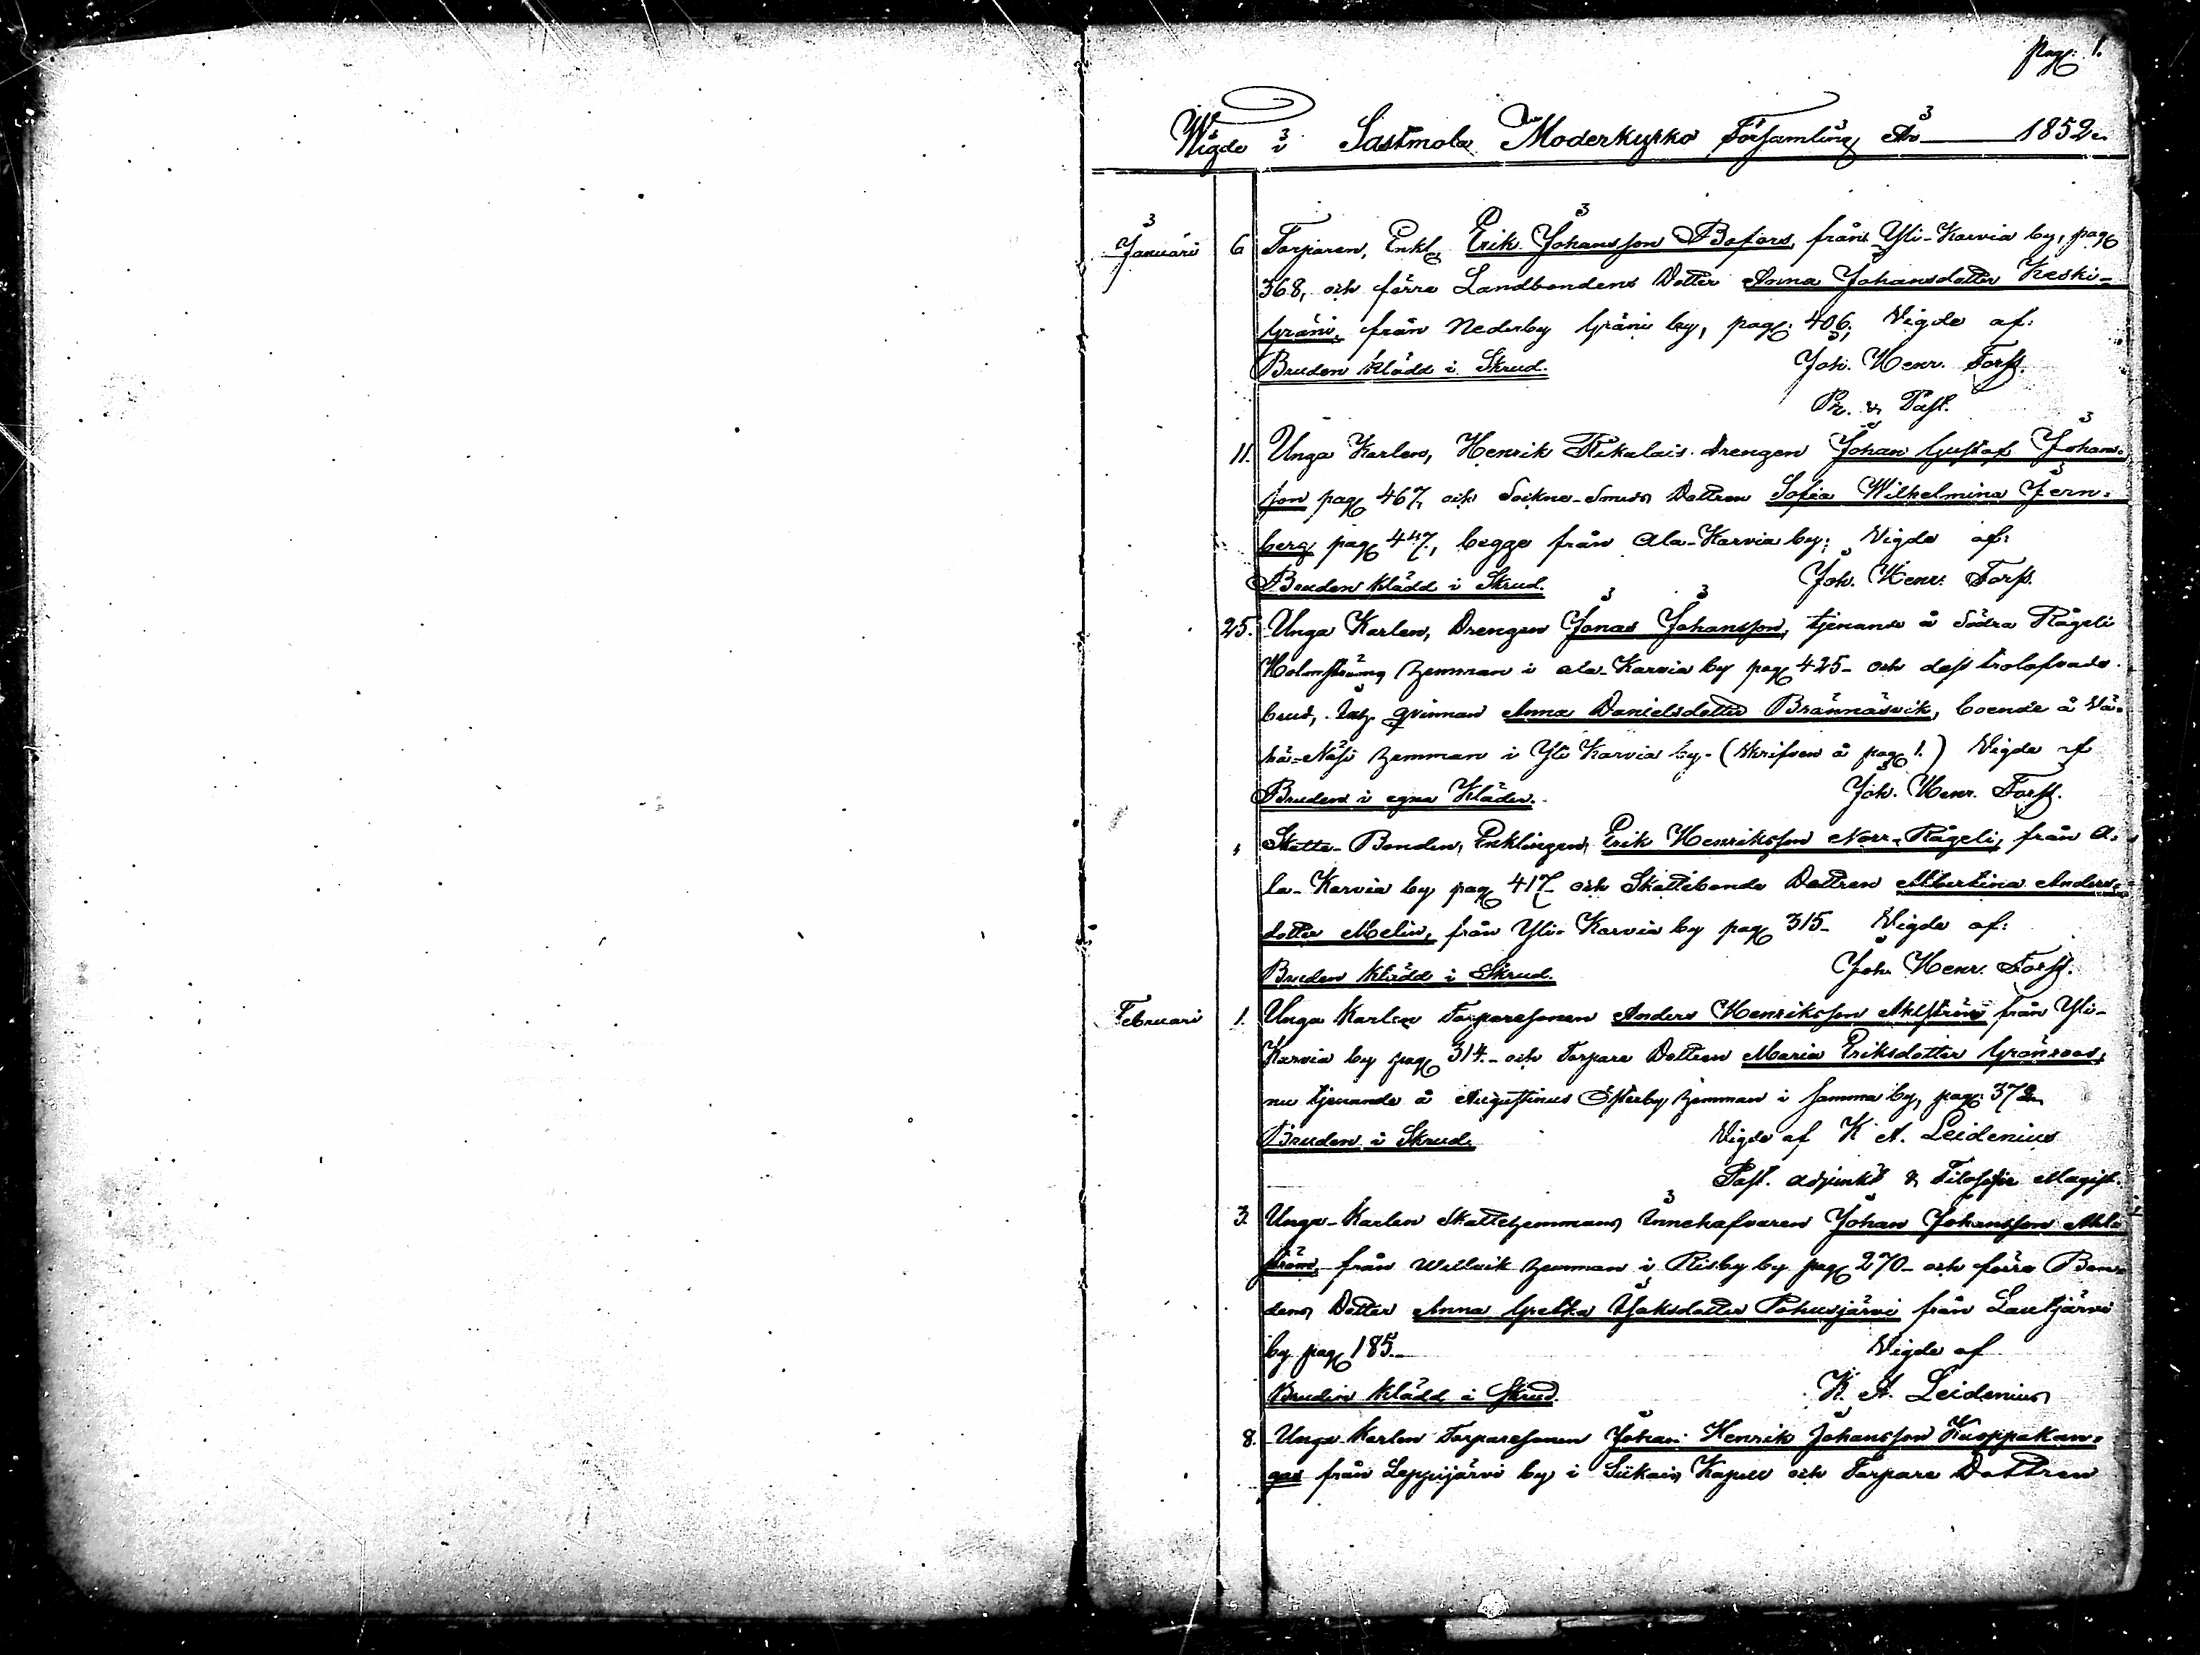 pag: 1.
Wigde i Sastmola Moderkyrko Församling År 1852.
Januari 6 Torparen, Enkl. Erik Johansson Bofors, från Yli-Karvia by, pag
368, och förre Landbondens Dotter Anna Johansdotter Keski-
Gräni, från Nederby Gräni by, pag: 406. Vigde af:
Bruden klädd i Skrud. Joh. Henr. Forss.
Pr. & Past.
11. Unga Karlen, Henrik Rikalais drengen Johan Gustaf Johans-
son pag 467, och Sockne-Smeds Dottren Sofia Wilhelmina Jern-
berg pag 447, begge från Ala-Karvia by; Vigde af:
Bruden klädd i Skrud. Joh. Henr. Forss.
25. Unga Karlen, Drengen Jonas Johansson, tjenande å Södra Rågeli
Holmströms hemman i Ala-Karvia by pag 425- och dess trolofvade
brud, qvinnan Anna Danielsdotter Brännäsvik, boende å Vä-
hä-Näsi hemman i Yli Karvia by. (Skrifven å pag 1.) Vigde af
Bruden i egna Kläder. Joh. Henr. Forss.
Skatte-Bonden, Enklingen, Erik Henriksson Norr-Rågeli, från A-
la-Karvia by pag 417- och Skattebonde Dottren Albertina Anders-
dotter Melin, från Yli-Karvia by pag 315- Vigde af:
Bruden klädd i Skrud. Joh. Henr. Forss.
Februari 1. Unga Karlen Torparesonen Anders Henriksson Ahlström från Yli-
Karvia by pag 314.- och Torpare Dottren Maria Eriksdotter Grönroos,
nu tjenande å Augustinus Efterby hemman i samma by, pag: 372.
Bruden i Skrud. Vigde af K A. Leidenius
Past. adjunkt & Filosofie Magist.
3. Unga-Karlen Skattehemmans Innehafvaren Johan Johansson Ahl-
ström, från Willvik hemman i Risby by pag 270- och förre Bon-
dens Dotter Anna Gretha Isaksdotter Pohusjärvi från Lautjärvi
by pag 185.- Vigde af
Bruden klädd i Skrud K. A. Leidenius
8. Unga Karlen Torparesonen Johan Henrik Johansson Kuoppakan-
gas från Leppijärvi by i Siikais Kapell och Torpare Dottren